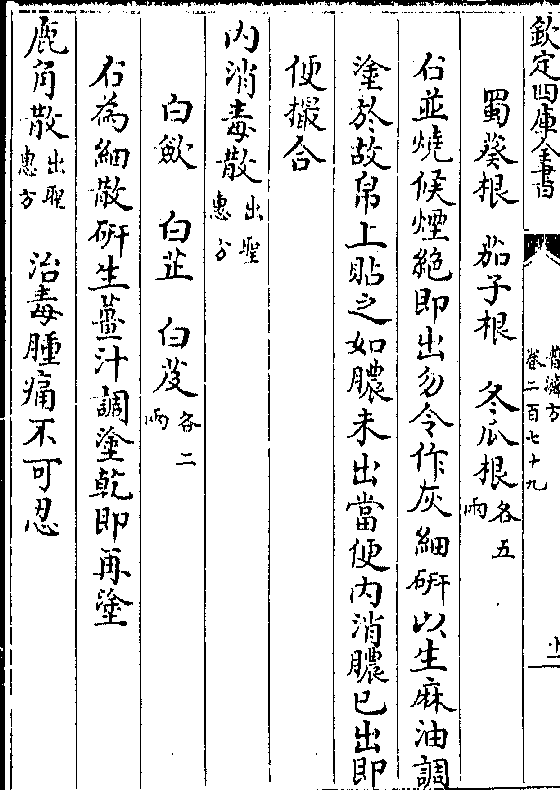 欽定四庫全書
普濟方
卷二百七十九
蜀葵根　茄子根　冬瓜根各五兩
右並燒候煙絶即出勿令作灰細研以生麻油調
塗於故帛上貼之如膿未出當便内消膿已出即
便撮合
内消毒散出聖惠方
白歛　白芷　白芨各二兩
右為細散研生薑汁調塗乾即再塗
鹿角散出聖惠方　治毒腫痛不可忍